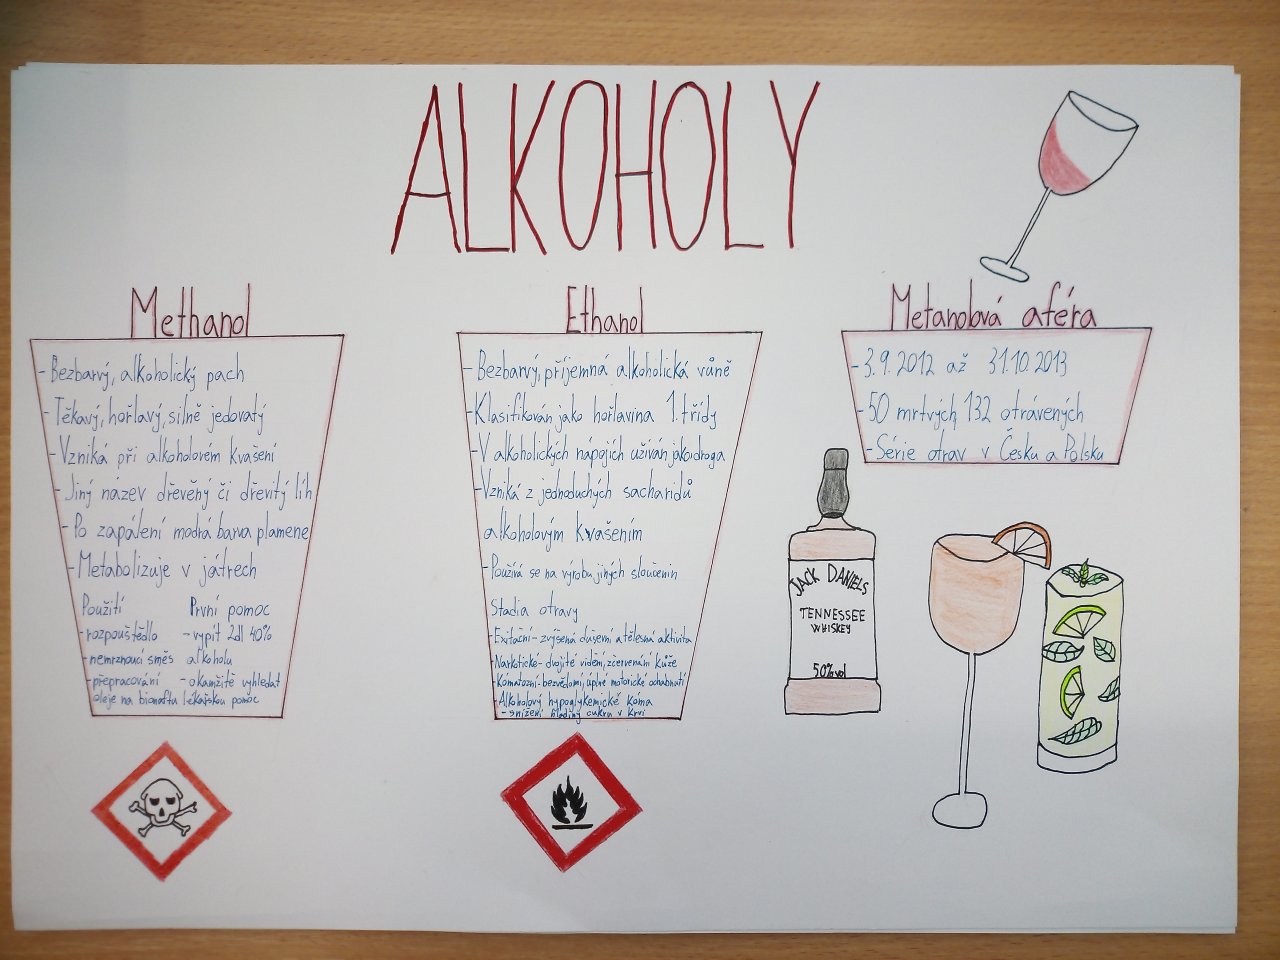 ALKOHOLY
Methanol
- Bezbarvý, alkoholický pach
- Těkavý, hořlavý, silně jedovatý
- Vzniká při alkoholovém kvašení
- Jiný název dřevěný či dřevitý líh
- Po zapálení modrá barva plamene
- Metabolizuje v játrech
Použití
- rozpouštědlo
- nemrznoucí směs
- přepracování
oleje na bionaftu
První pomoc
- vypít 2dl 40%
alkoholu
- okamžitě vyhledat
lékařskou pomoc
Ethanol
- Bezbarvý, příjemná alkoholická vůně
- Klasifikován jako hořlavina 1. třídy
- V alkoholických nápojích užíván jako droga
- Vzniká z jednoduchých sacharidů
alkoholovým kvašením
- Používá se na výrobu jiných sloučenin
Stadia otravy
- Exitační - zvýšená duševní a tělesná aktivita
- Narkotické - dvojité vidění, zčervenání kůže
- Komatozní - bezvědomí, úplné motorické ochabnutí
- Alkoholový hypoglykemické koma
- snížení hladiny cukru v krvi
Metanolová aféra
- 3.9.2012 až 31.10.2013
- 50 mrtvých, 132 otrávených
- Série otrav v Česku a Polsku
JACK DANIELS
TENNESSEE
WHISKEY
50% vol